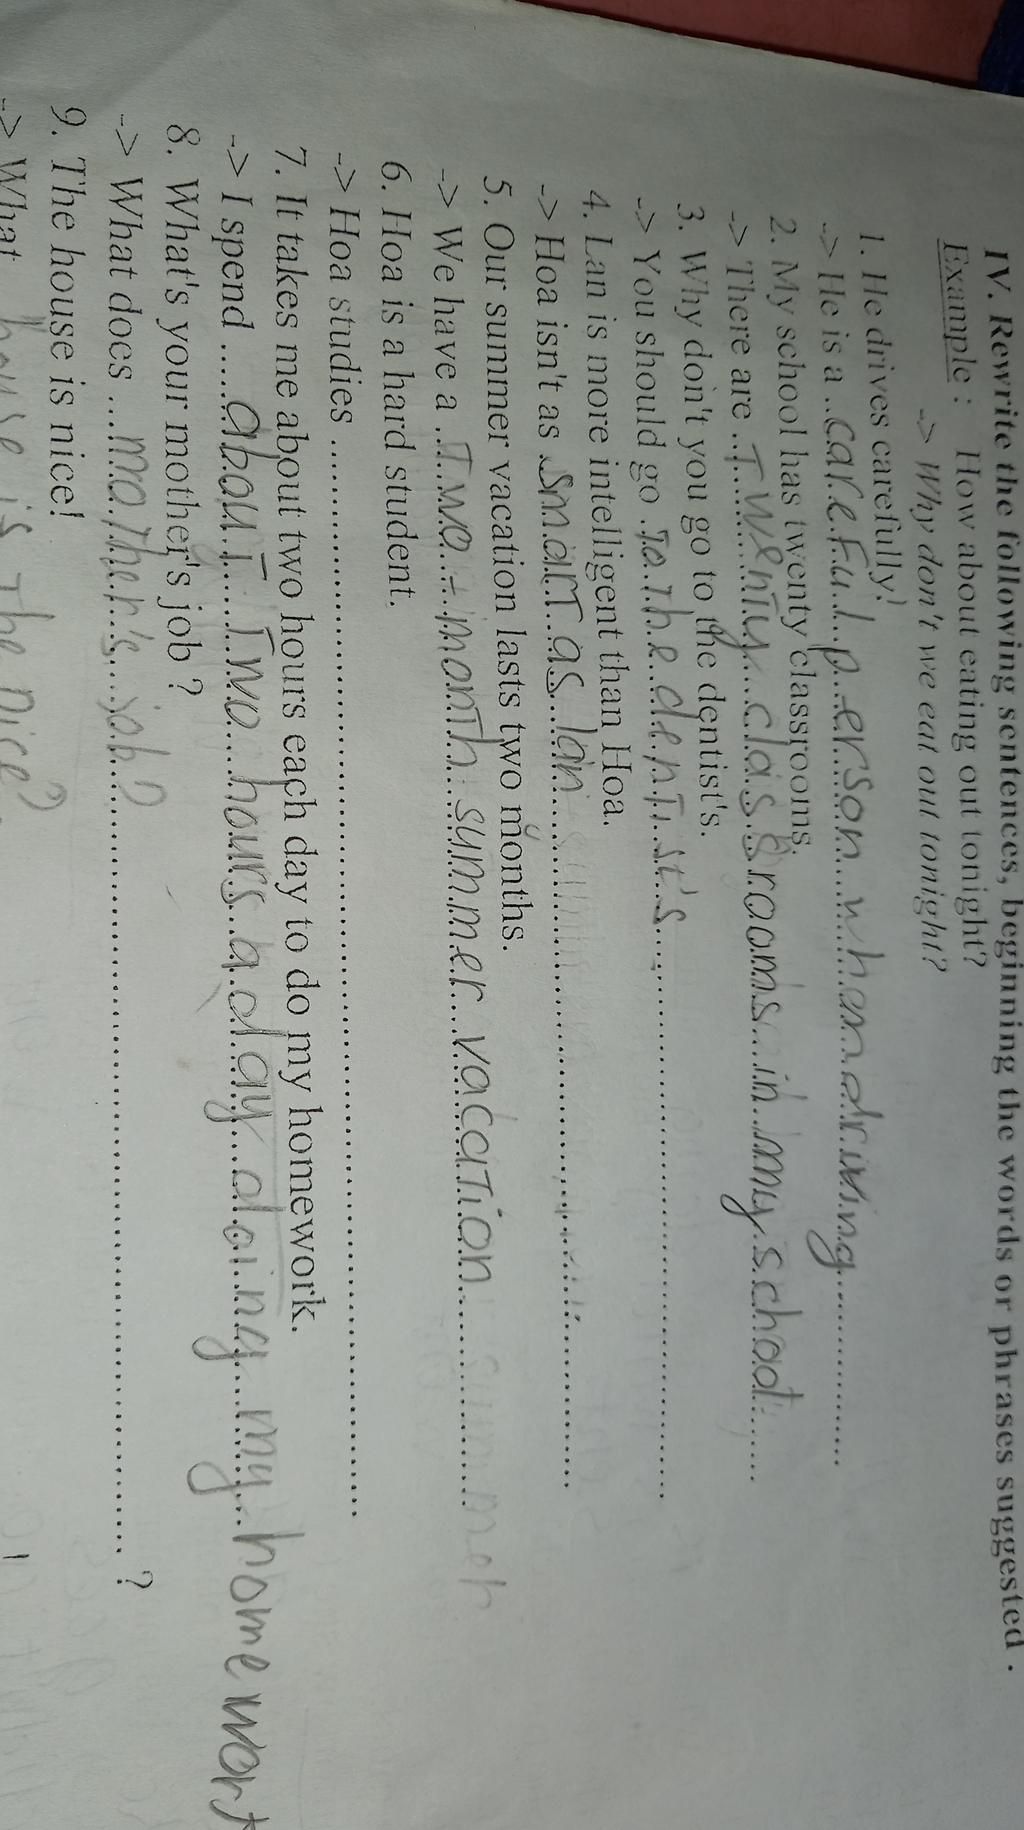 IV. Rewrite the following sentences, beginning the words or phrases suggested .
Example : How about eating out tonight?
-> Why don't we eat out tonight?
1. He drives carefully!
-> He is a ..careful person when driving..............
2. My school has twenty classrooms.
-> There are ..Twenty classrooms in my school......
3. Why don't you go to the dentist's.
-> You should go .To The dentist's...............................
4. Lan is more intelligent than Hoa.
-> Hoa isn't as .smart as lan...............................
5. Our summer vacation lasts two months.
-> We have a ..Two-month summer vacation.................
6. Hoa is a hard student.
-> Hoa studies ................................................................
7. It takes me about two hours each day to do my homework.
-> I spend .....about Two hours a day doing my homework
8. What's your mother's job ?
-> What does ...mother's job?............................................. ?
9. The house is nice!
-> What house is The nice?